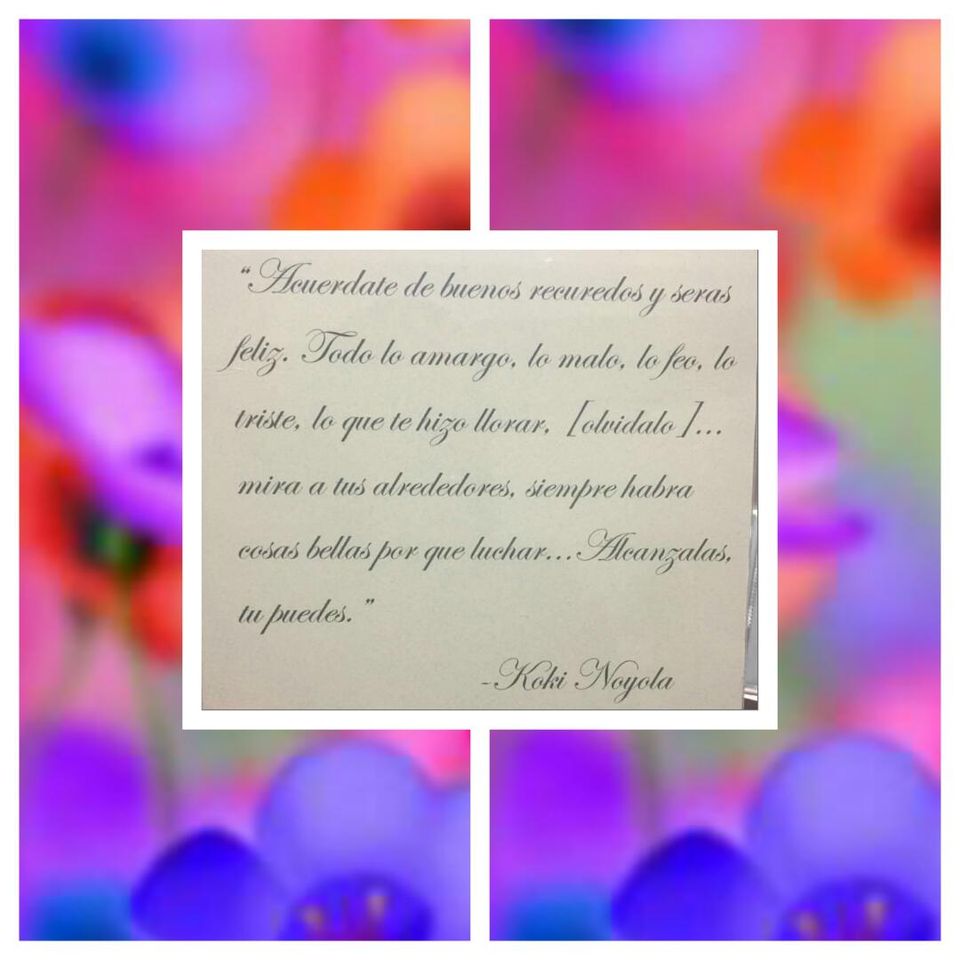 “Acuerdate de buenos recuredos y seras
feliz. Todo lo amargo, lo malo, lo feo, lo
triste, lo que te hizo llorar, [olvidalo]...
mira a tus alrededores, siempre habra
cosas bellas por que luchar...Alcanzalas,
tu puedes.”
-Koki Noyola